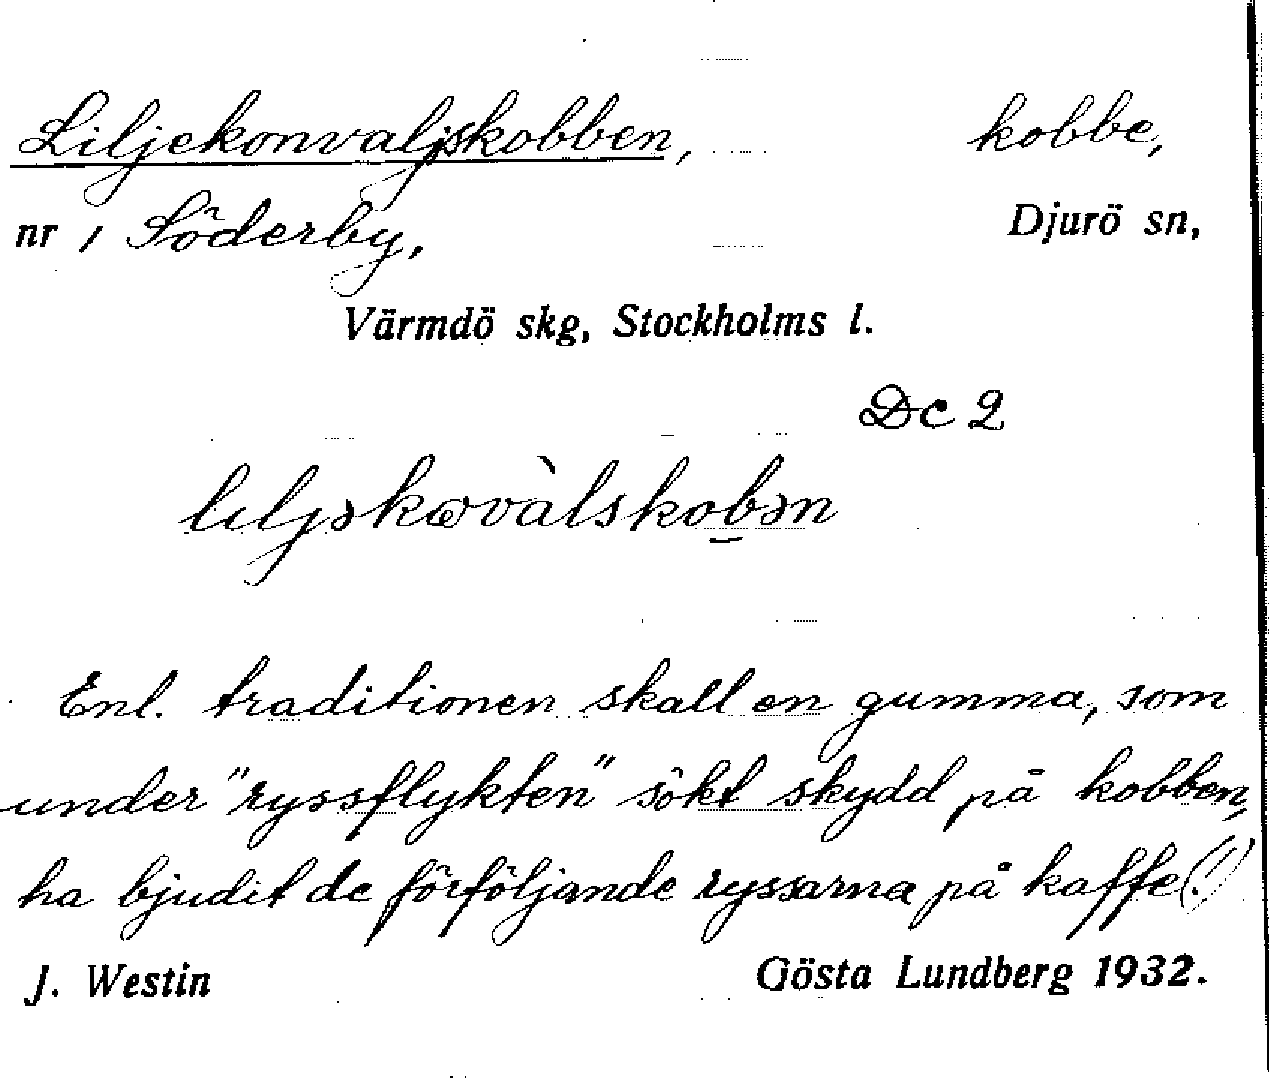 Liljekonvaljskobben, kobbe,
nr 1 Söderby, Djurö sn,
Värmdö skg, Stockholms l.
Dc 2
Enl. traditionen skall en gumma, som
under "ryssflykten" sökt skydd på kobben,
ha bjudit de förföljande ryssarna på kaffe(!)
J. Westin Gösta Lundberg 1932.